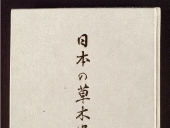 日本の草木